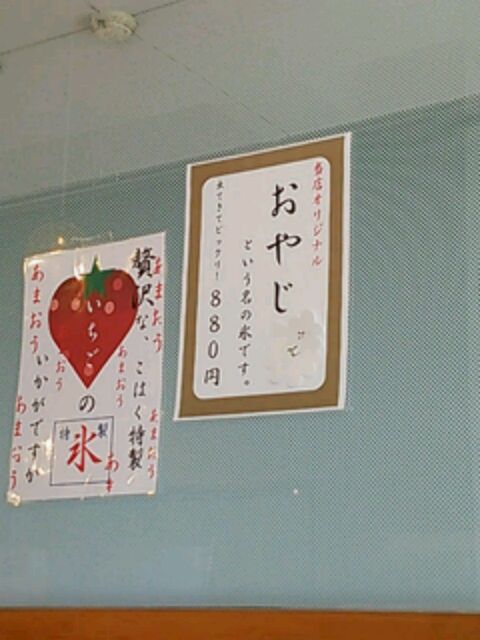 当店オリジナル
おやじ
って
という名の氷です。
出てきてビックリ!
880円
贅沢な、こはく特製
いちごの
特製
氷
いかがですか
あまおう
あまおう
あまおう
あまおう
あまおう